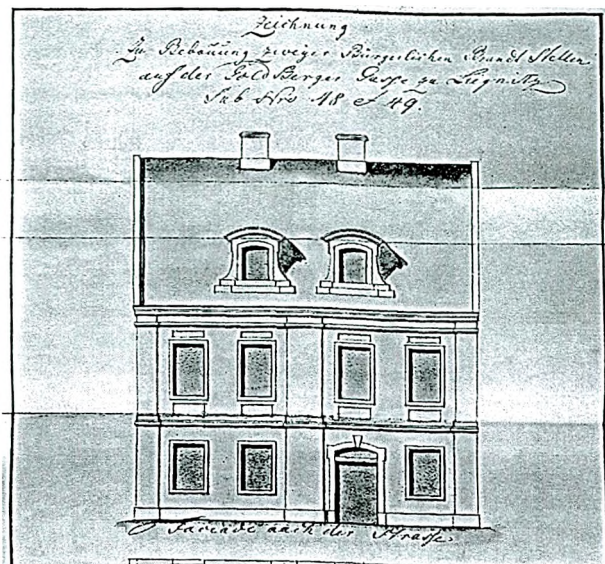 Zeichnung
Zu Bebauung zweyer Bürgerlichen Brandt Stellen
auf der Goldberger Gasse zu Liegnitz
Sub Nro 48 et 49.
Facade nach der Strasse